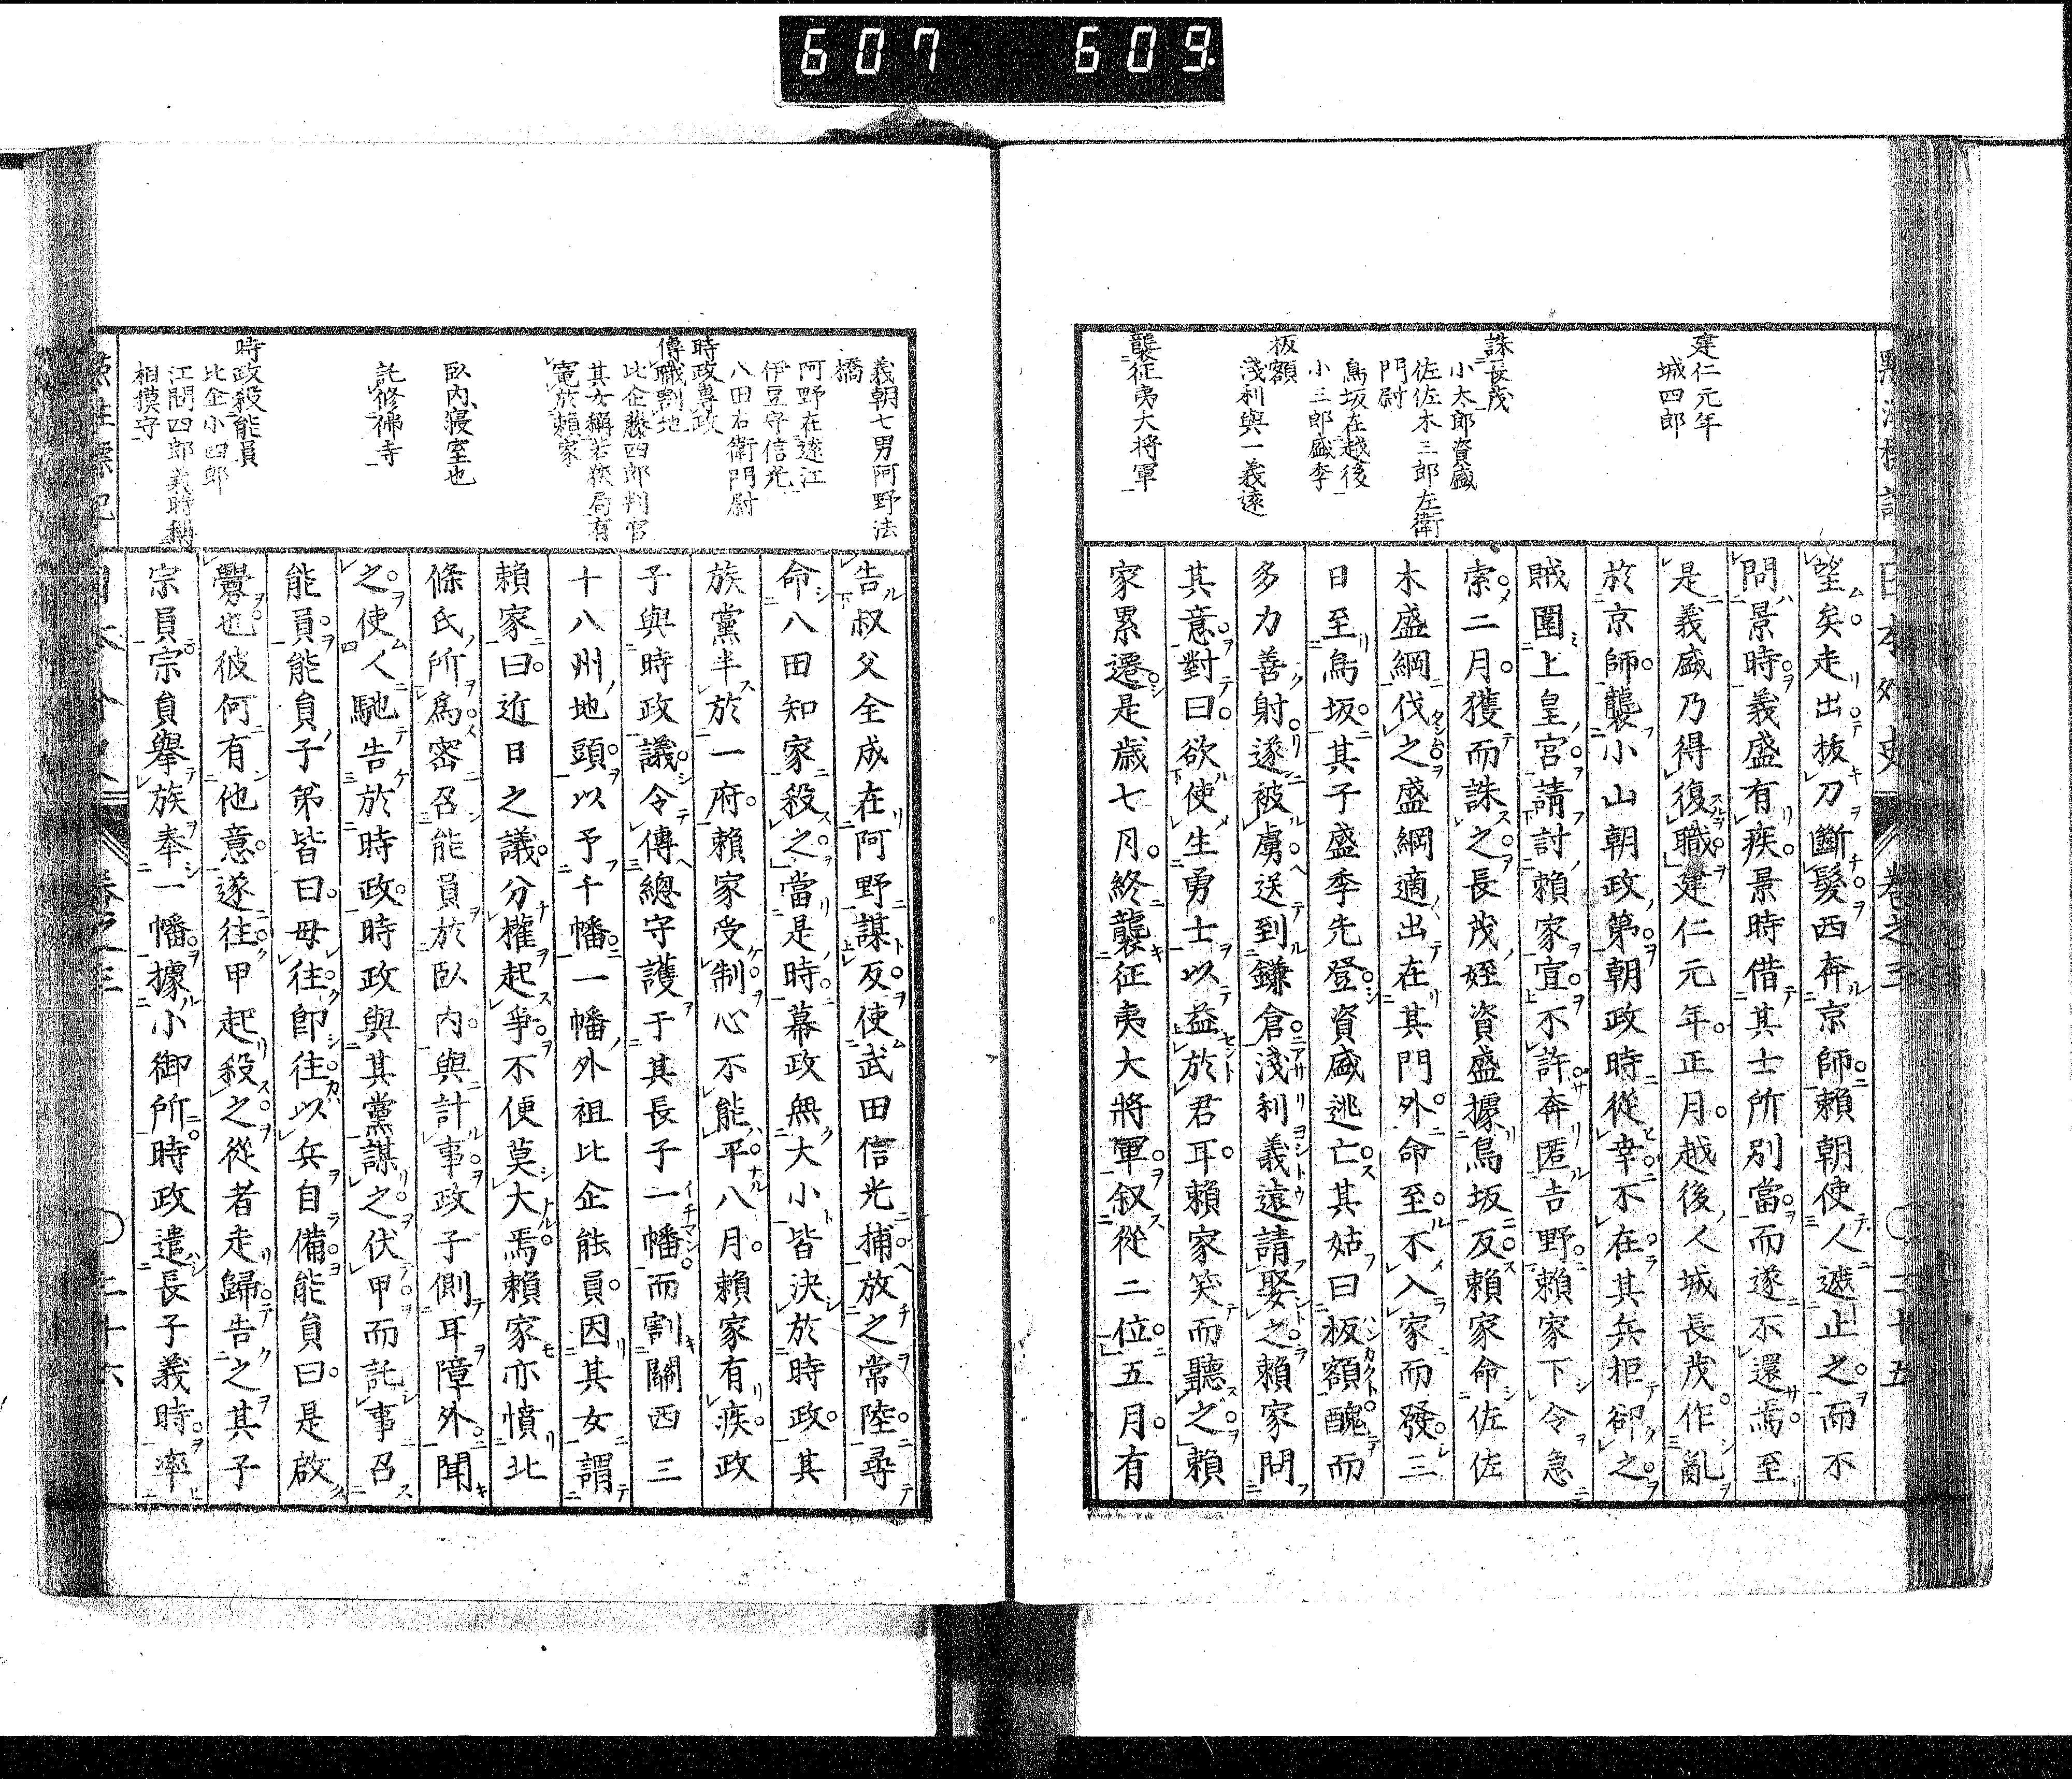 607 609
望矣走出拔刀斷髮西奔京師賴朝使人遮止之而不
問景時義盛有疾景時借其士所別當而遂不還焉至
是義盛乃得復職建仁元年正月越後人城長茂作亂
於京師襲小山朝政第朝政時從幸不在其兵柜卻之
賊圍上皇宮請討賴家宣不許奔匿吉野賴家下令急
索二月獲而誅之長茂姪資盛據鳥坂反賴家命佐佐
木盛綱伐之盛綱適出在其門外命至不入家而發三
日至鳥坂其子盛季先登資盛逃亡其姑曰板額醜而
多力善射遂被虜送到鎌倉淺利義遠請娶之賴家問
其意對曰欲使生勇士以益於君耳賴家笑而聽之賴
家累遷是歲七月終襲征夷大將軍叙從二位五月有
建仁元年
城四郎
誅長茂
小太郎資盛
佐佐木三郎左衛
門尉
鳥坂在越後
小三郎盛季
板額
淺利與一義遠
襲征夷大将軍
日本外史 卷之三 二十五
告叔父全成在阿野謀反使武田信光捕放之常陸尋
命八田知家殺之當是時幕政無大小皆決於時政其
族黨半於一府賴家受制心不能平八月賴家有疾政
子與時政議令傳總守護于其長子一幡而割關西三
十八州地頭以予千幡一幡外祖比企能員因其女謂
賴家曰近日之議分權起爭不便莫大焉賴家亦憤北
條氏所爲密召能員於臥内與計事政子側耳障外聞
之使人馳告於時政時政與其黨謀之伏甲而託事召
能員能員子弟皆曰毋往卽往以兵自備能員曰是啟
釁也彼何有他意遂往甲起殺之從者走歸告之其子
宗員宗員舉族奉一幡據小御所時政遣長子義時率
義朝七男阿野法
橋
阿野在遠江
伊豆守信光
八田右衛門尉
時政專政
傳職割地
比企藤四郎判官
其女稱若狹局有
寵於賴家
臥内寢室也
託修佛寺
時政殺能員
比企小四郎
江間四郎義時稱
相摸守